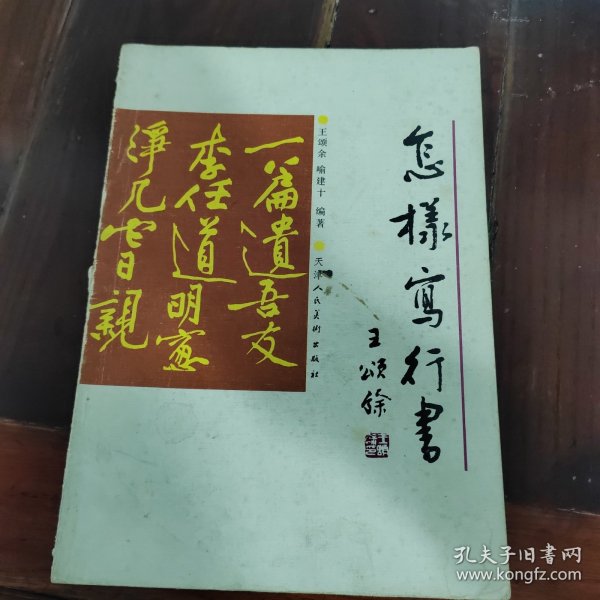 怎樣寫行書
王頌餘
王颂余 喻建十 编著
天津人民美術出版社
一篇遺吾友
李任道明窻
淨几時一親
孔夫子旧書网
www.kongfz.com